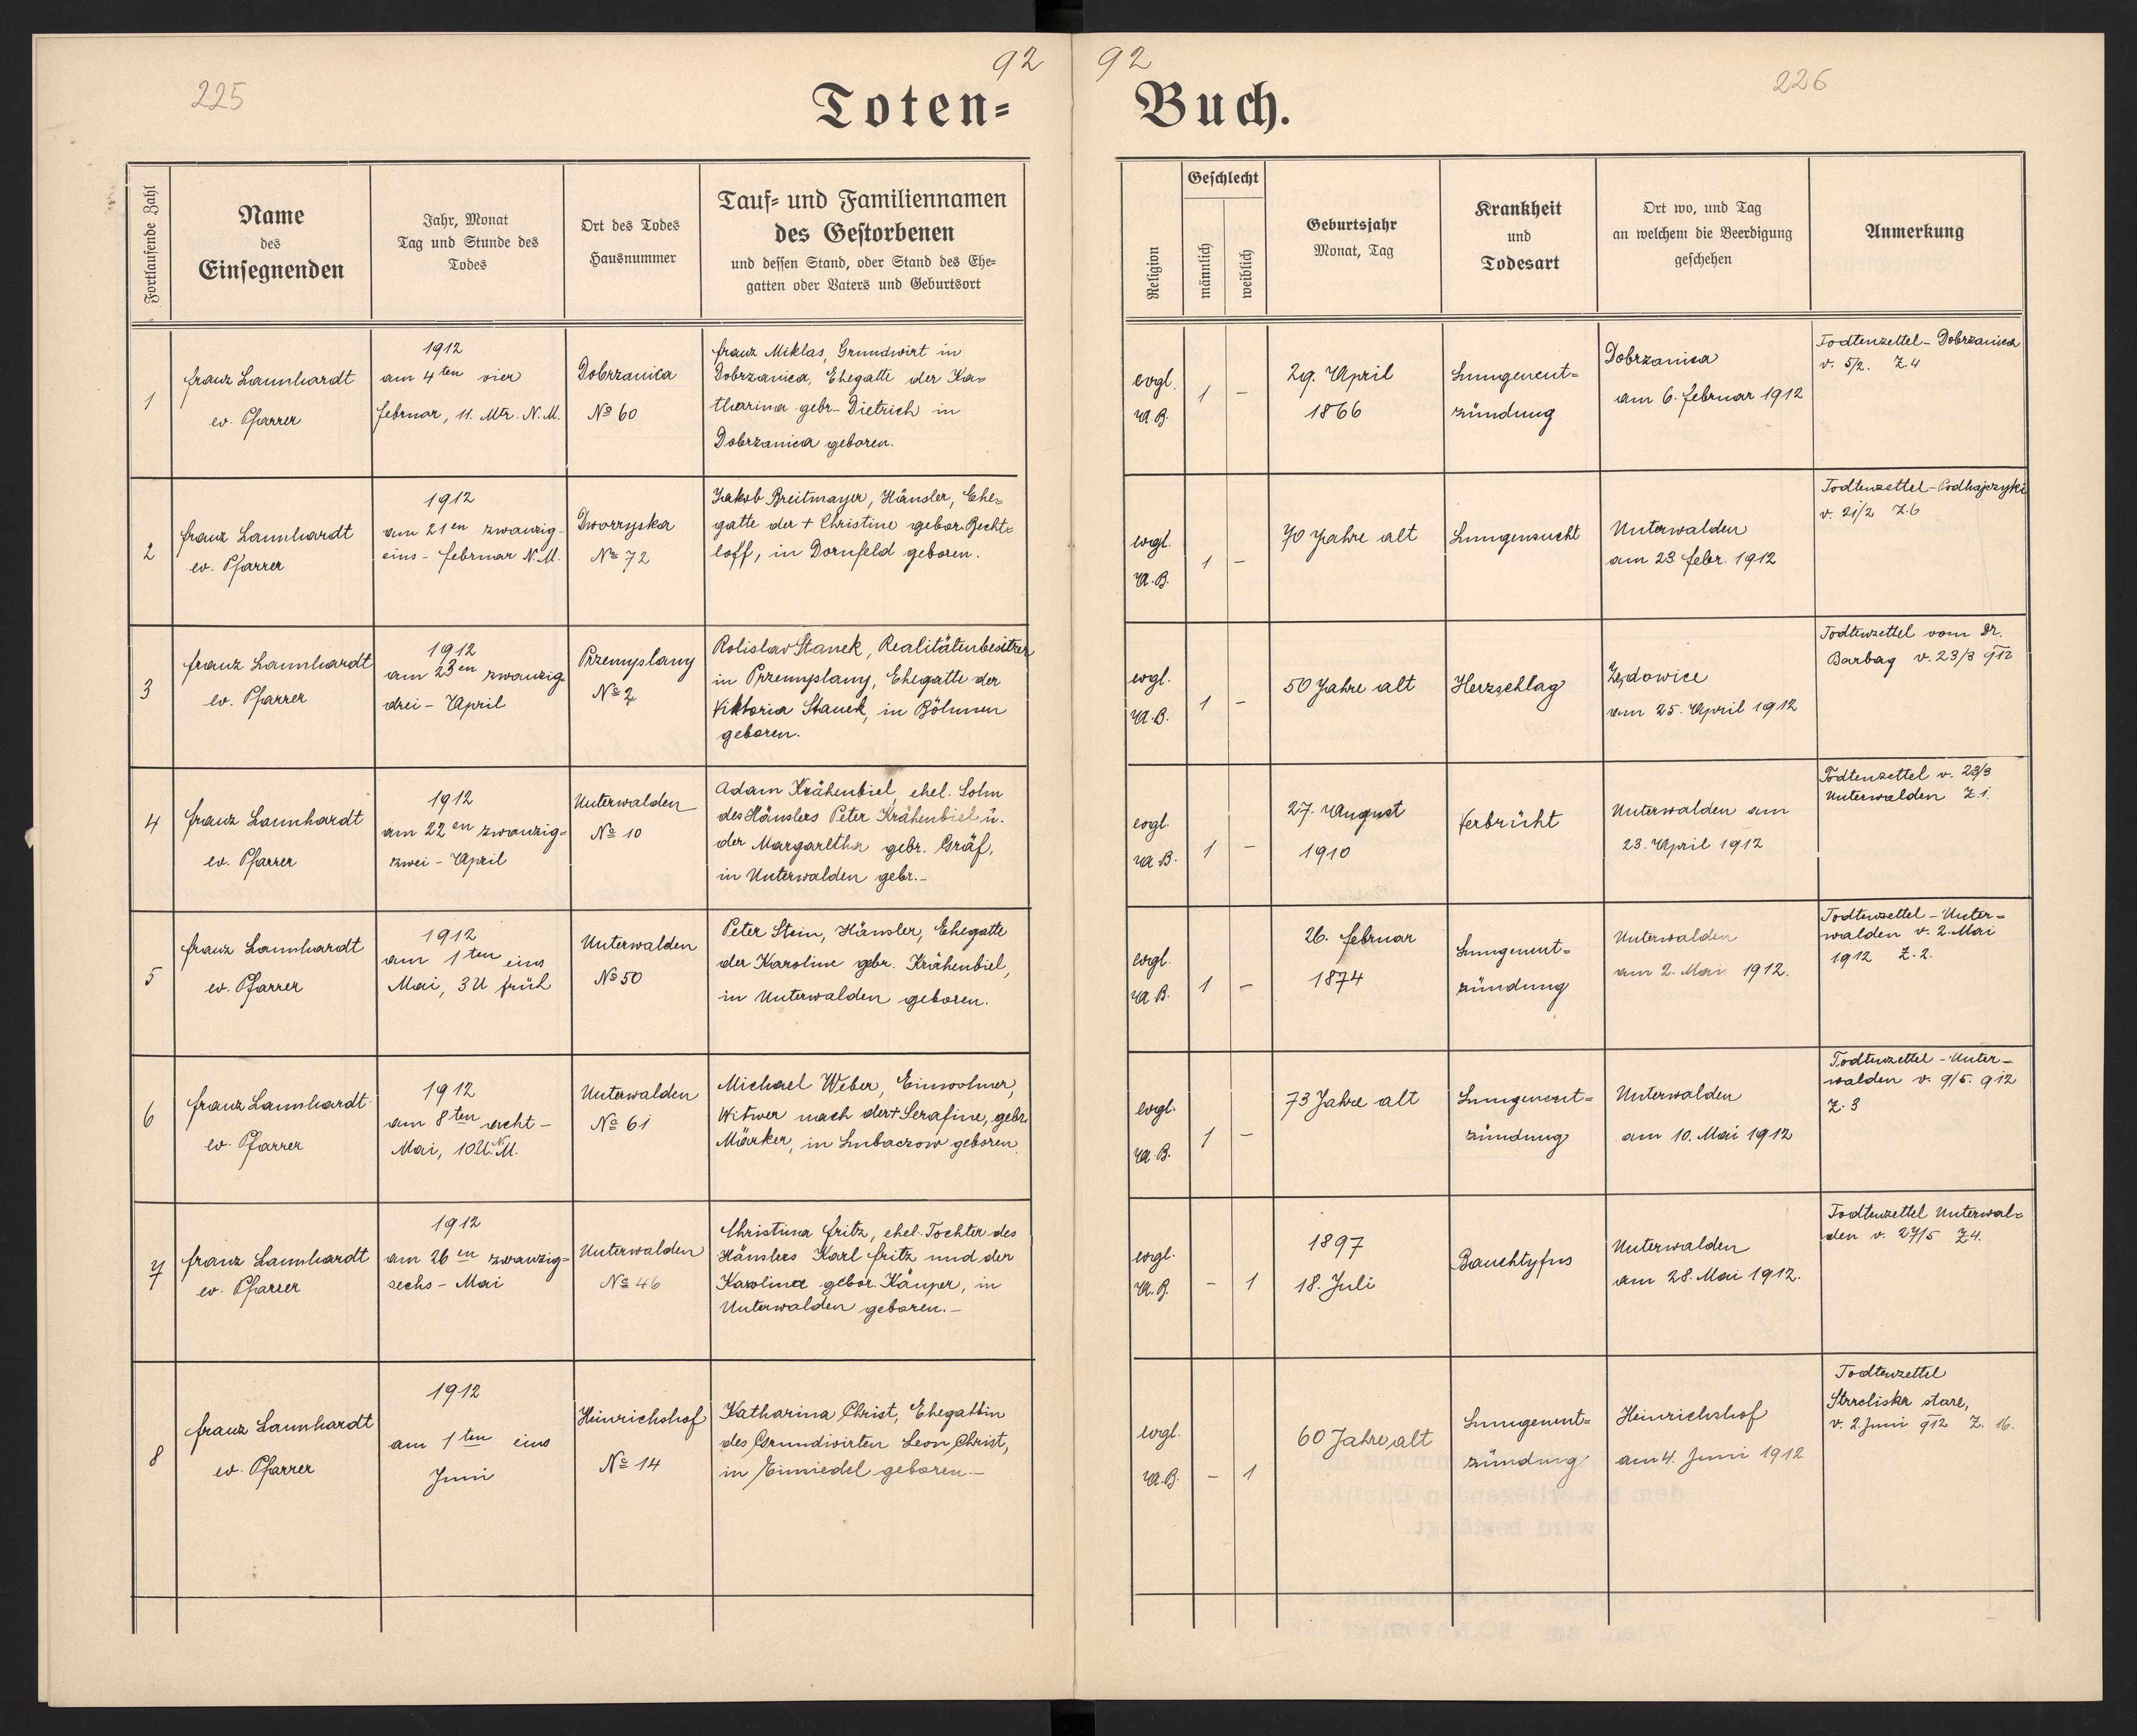 92
92
225
226
Toten-
Buch.
Fortlaufende Zahl
Name
des
Einsegnenden
Jahr, Monat
Tag und Stunde des
Todes
Ort des Todes
Hausnummer
Tauf- und Familiennamen
des Gestorbenen
und dessen Stand, oder Stand des Ehe-
gatten oder Vaters und Geburtsort
Religion
Geschlecht
männlich
weiblich
Geburtsjahr
Monat, Tag
Krankheit
und
Todesart
Ort wo, und Tag
an welchem die Beerdigung
geschehen
Anmerkung
1
Franz Launhardt
ev. Pfarrer
1912
am 4ten vier
Februar, 11. Mtr. N.M.
Dobrzanica
No 60
Franz Miklas, Grundwirt in
Dobrzanica, Ehegatte der Ka-
tharina gebr. Dietrich in
Dobrzanica geboren.
evgl.
A.B.
1
-
29. April
1866
Lungenent-
zündung
Dobrzanica
am 6. Februar 1912
Todtenzettel - Dobrzanica
v. 5/2. Z.4
2
Franz Launhardt
ev. Pfarrer
1912
am 21en zwanzig-
eins - Februar N.M.
Dworzyska
No 72
Jakob Breitmayer, Häusler, Ehe-
gatte der + Christine gebor. Becht-
loff, in Dornfeld geboren.
evgl.
A.B.
1
-
70 Jahre alt
Lungensucht
Unterwalden
am 23 Febr. 1912
Todtenzettel - Podhajczyki
v. 21/2 Z.6
3
Franz Launhardt
ev. Pfarrer
1912
am 23en zwanzig
drei - April
Przemyslany
No 2
Rolislav Stanek, Realitätenbesitzer
in Przemyslany, Ehegatte der
Viktoria Stanek, in Böhmen
geboren.
evgl.
A.B.
1
-
50 Jahre alt
Herzschlag
Zędowice
am 25. April 1912
Todtenzettel vom Dr.
Barbag v. 23/3 912
4
Franz Launhardt
ev. Pfarrer
1912
am 22en zwanzig-
zwei - April
Unterwalden
No 10
Adam Krähenbiel, ehel. Sohn
des Häuslers Peter Krähenbiel u.
der Margaretha gebr. Gräf,
in Unterwalden gebr.-
evgl.
A.B.
1
-
27. August
1910
Verbrüht
Unterwalden am
23. April 1912
Todtenzettel v. 23/3
Unterwalden Z.1.
5
Franz Launhardt
ev. Pfarrer
1912
am 1ten eins
Mai, 3U früh
Unterwalden
No 50
Peter Stein, Häusler, Ehegatte
der Karoline gebr. Krähenbiel,
in Unterwalden geboren.
evgl.
A.B.
1
-
26. Februar
1874
Lungenent-
zündung
Unterwalden
am 2. Mai 1912.
Todtenzettel - Unter-
walden v. 2. Mai
1912 Z.2.
6
Franz Launhardt
ev. Pfarrer
1912
am 8ten acht -
Mai, 10U. N.M.
Unterwalden
No 61
Michael Weber, Einwohner,
Witwer nach der + Serafine, gebr.
Märker, in Lubaczow geboren.
evgl.
A.B.
1
-
73 Jahre alt
Lungenent-
zündung
Unterwalden
am 10. Mai 1912
Todtenzettel - Unter-
walden v. 9/5. 912
Z. 3
7
Franz Launhardt
ev. Pfarrer
1912
am 26en zwanzig-
sechs - Mai
Unterwalden
No 46
Christina Fritz, ehel. Tochter des
Häuslers Karl Fritz und der
Karolina gebor. Kauper, in
Unterwalden geboren.-
evgl.
A.B.
-
1
1897
18. Juli
Bauchtyfus
Unterwalden
am 28. Mai 1912.
Todtenzettel Unterwal-
den v. 27/5 Z4.
8
Franz Launhardt
ev. Pfarrer
1912
am 1ten eins
Juni
Heinrichshof
No 14
Katharina Christ, Ehegattin
des Grundwirten Leon Christ,
in Einsiedel geboren.-
evgl.
A.B.
-
1
60 Jahre alt
Lungenent-
zündung
Heinrichshof
am 4. Juni 1912
Todtenzettel
Strzeliska stare,
v. 2 Juni 912 Z. 16.